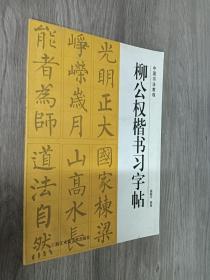 中国书法教程
柳公权楷书习字帖
光明正大
崢嶸歲月
能者為師
國家棟梁
山高水長
道法自然